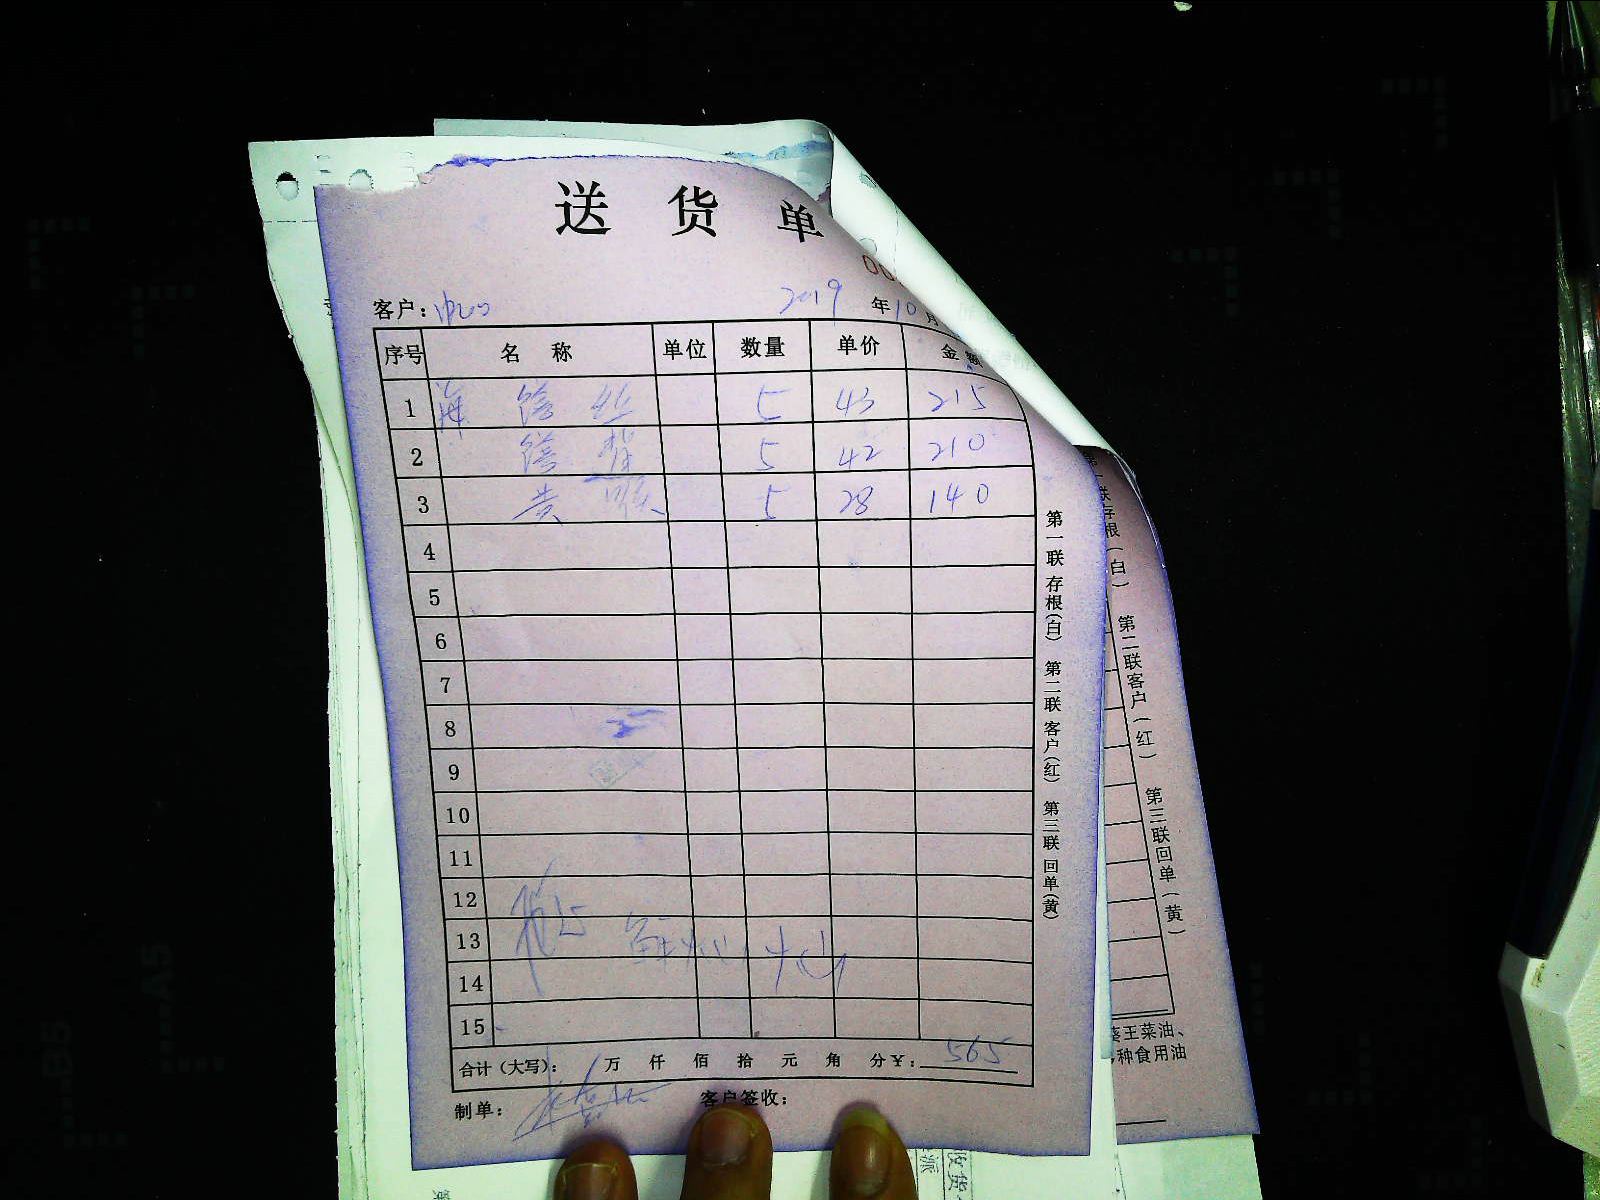 送货单
00
客户: 2019年10月
序号 名称 单位 数量 单价 金额
1 丝 5 43 215
2 5 42 210
3 黄喉 5 28 140
4
5
6
7
8
9
10
11
12
13
14
15
合计（大写）： 万 仟 佰 拾 元 角 分￥：565
制单： 客户签收：
第一联存根(白) 第二联客户(红) 第三联回单(黄)
联存根（白） 第二联客户（红） 第三联回单（黄）
葵王菜油、
种食用油
收货
派